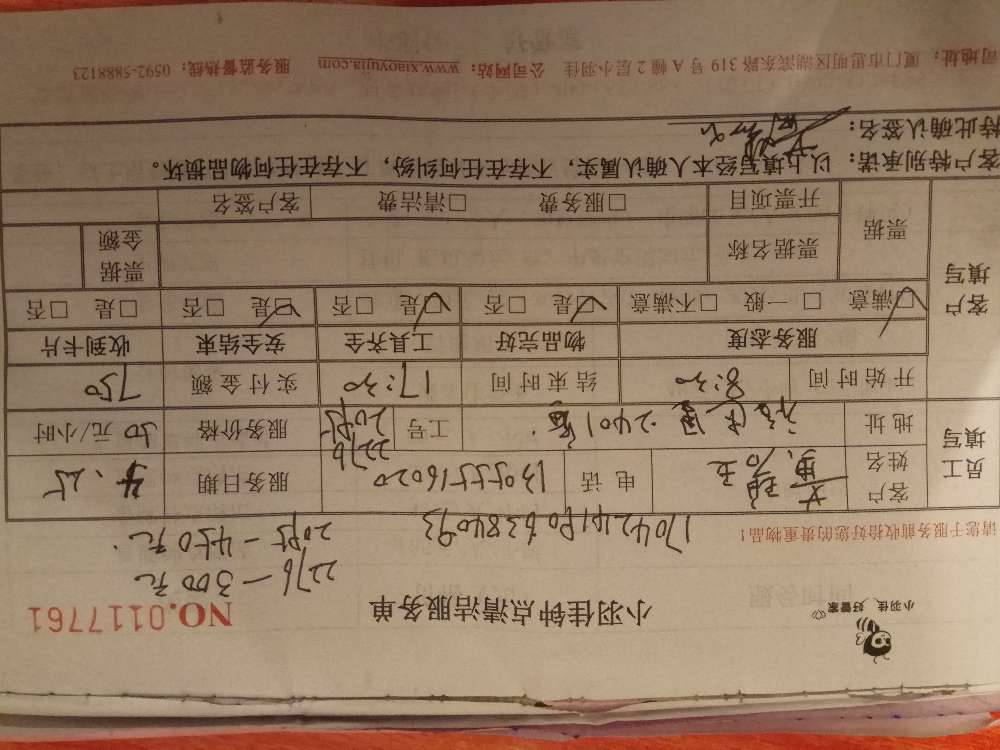 小羽佳 好管家
小羽佳钟点清洁服务单
NO.0117761
2276—300元
2085—450元.
请您于服务前收拾好您的贵重物品!
1704241906384093
员工填写
客户姓名
电话
13055516020
服务日期
4.25
地址
2401室.
工号
2276
2085
服务价格
30元/小时
开始时间
8:30
结束时间
17:30
实付金额
750
客户填写
服务态度
物品完好
工具齐全
安全结束
收到卡片
☑满意 □一般 □不满意
☑是 □否
☑是 □否
☑是 □否
□是 □否
票据
票据名称
票据金额
开票项目
□服务费 □清洁费
客户签名
客户特别承诺:以上填写经本人确认,属实,不存在任何纠纷,不存在任何物品损坏。
特此确认签名:
司地址:厦门市思明区湖滨东路319号A幢2层小羽佳 公司网站:www.xiaoyujia.com 服务监督热线:0592-5888123